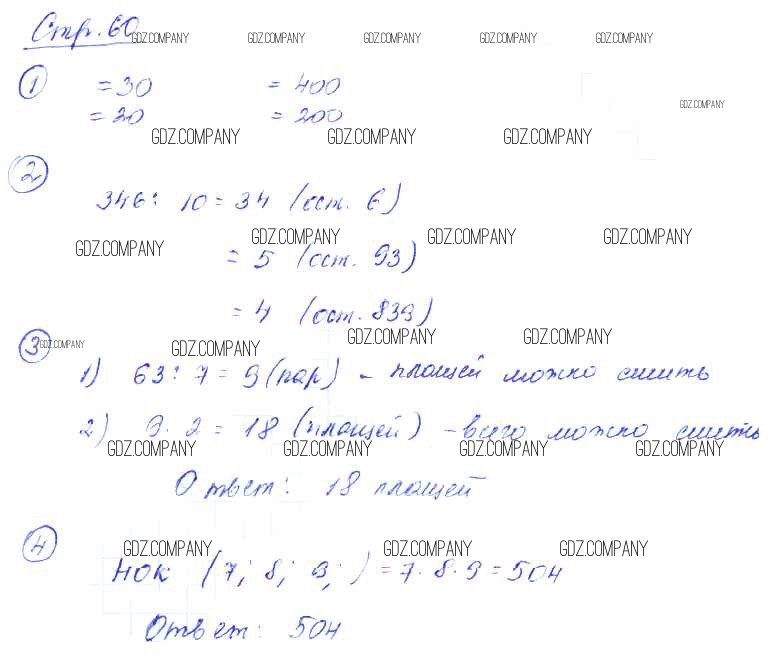 Стр. 60
GDZ.COMPANY GDZ.COMPANY GDZ.COMPANY GDZ.COMPANY GDZ.COMPANY
1 = 30 = 400
GDZ.COMPANY
= 20 = 200
GDZ.COMPANY GDZ.COMPANY GDZ.COMPANY
2
346 : 10 = 34 (ост. 6)
GDZ.COMPANY GDZ.COMPANY GDZ.COMPANY GDZ.COMPANY
= 5 (ост. 93)
= 4 (ост. 839)
3 GDZ.COMPANY GDZ.COMPANY GDZ.COMPANY GDZ.COMPANY
1) 63 : 7 = 9 (пар) - плащей можно сшить
2) 9 · 2 = 18 (плащей) - всего можно сшить
GDZ.COMPANY GDZ.COMPANY GDZ.COMPANY GDZ.COMPANY
Ответ: 18 плащей
4
GDZ.COMPANY GDZ.COMPANY GDZ.COMPANY
НОК (7; 8; 9; ) = 7 · 8 · 9 = 504
Ответ: 504